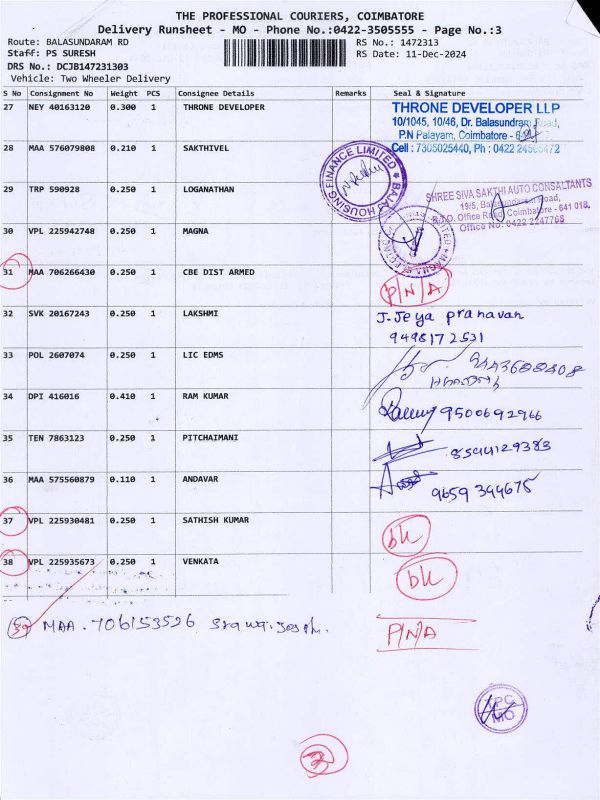 THE PROFESSIONAL COURIERS, COIMBATORE
Delivery Runsheet - MO - Phone No.:0422-3505555 - Page No.:3
Route: BALASUNDARAM RD RS No.: 1472313
Staff: PS SURESH RS Date: 11-Dec-2024
DRS No.: DCJB147231303
Vehicle: Two Wheeler Delivery
S No Consignment No Weight PCS Consignee Details Remarks Seal & Signature
27 NEY 40163120 0.300 1 THRONE DEVELOPER
THRONE DEVELOPER LLP
10/1045, 10/46, Dr. Balasundram Road,
P.N Palayam, Coimbatore -
Cell : 7305025440, Ph : 0422
28 MAA 576079808 0.210 1 SAKTHIVEL
BAJAJ HOUSING FINANCE LIMITED
29 TRP 590928 0.250 1 LOGANATHAN
SHREE SIVA SAKTHI AUTO CONSULTANTS
19/5, Balasundaram Road,
R.T.O. Office Road, Coimbatore - 641 018.
Office No: 0422 2247768
30 VPL 225942748 0.250 1 MAGNA
31 MAA 706266430 0.250 1 CBE DIST ARMED P/N/A
32 SVK 20167243 0.250 1 LAKSHMI J. Jeya pranavan
9498172531
33 POL 2607074 0.250 1 LIC EDMS
34 DPI 416016 0.410 1 RAM KUMAR 9500692966
35 TEN 7863123 0.250 1 PITCHAIMANI 8544129383
36 MAA 575560879 0.110 1 ANDAVAR 9659 344675
37 VPL 225930481 0.250 1 SATHISH KUMAR bk
38 VPL 225935673 0.250 1 VENKATA bk
39 MAA . 706153526 P/N/A
TPC
MO
2